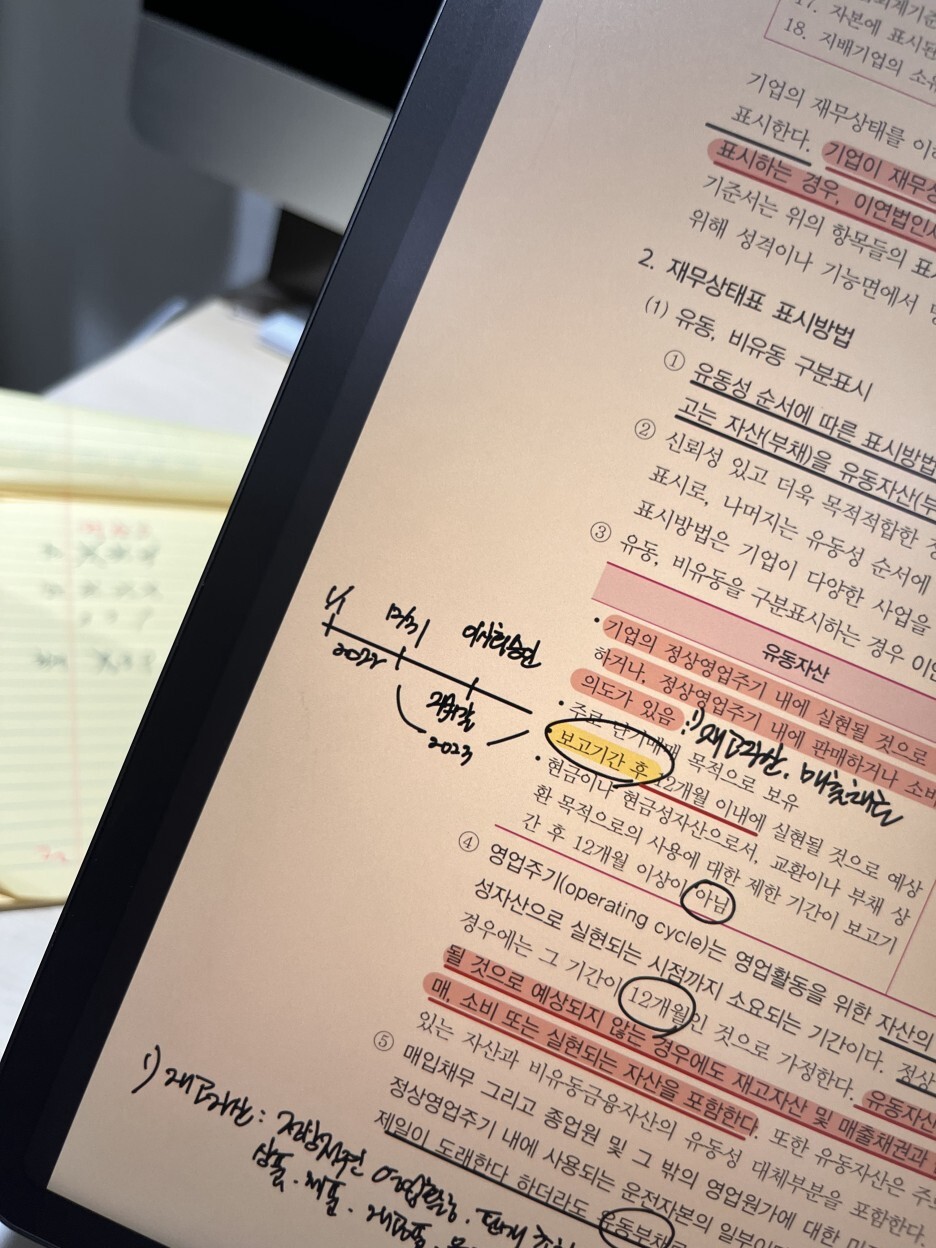 17. 자본에 표시된
18. 지배기업의 소유
기업의 재무상태를 이해
표시한다. 기업이 재무상
표시하는 경우, 이연법인세
기준서는 위의 항목들의 표시
위해 성격이나 기능면에서 명
2. 재무상태표 표시방법
(1) 유동, 비유동 구분표시
① 유동성 순서에 따른 표시방법
고는 자산(부채)을 유동자산(부
② 신뢰성 있고 더욱 목적적합한 정
표시로, 나머지는 유동성 순서에
표시방법은 기업이 다양한 사업을
③ 유동, 비유동을 구분표시하는 경우 이연
유동자산
• 기업의 정상영업주기 내에 실현될 것으로
하거나, 정상영업주기 내에 판매하거나 소비
의도가 있음 : 1) 재고자산, 매출채권
• 주로 단기매매 목적으로 보유
• 보고기간 후 12개월 이내에 실현될 것으로 예상
• 현금이나 현금성자산으로서, 교환이나 부채 상
환 목적으로의 사용에 대한 제한 기간이 보고기
간 후 12개월 이상이 아님
1/1 12/31
2022
2023
④ 영업주기(operating cycle)는 영업활동을 위한 자산의
성자산으로 실현되는 시점까지 소요되는 기간이다. 정상
경우에는 그 기간이 12개월인 것으로 가정한다. 유동자산
될 것으로 예상되지 않는 경우에도 재고자산 및 매출채권과
매, 소비 또는 실현되는 자산을 포함한다. 또한 유동자산은 주로
있는 자산과 비유동금융자산의 유동성 대체부분을 포함한다.
⑤ 매입채무 그리고 종업원 및 그 밖의 영업원가에 대한 미
정상영업주기 내에 사용되는 운전자본의 일부이
제일이 도래한다 하더라도 유동부채로
1) 재고자산 : 정상적인 영업활동, 판매
상품, 제품, 재공품,